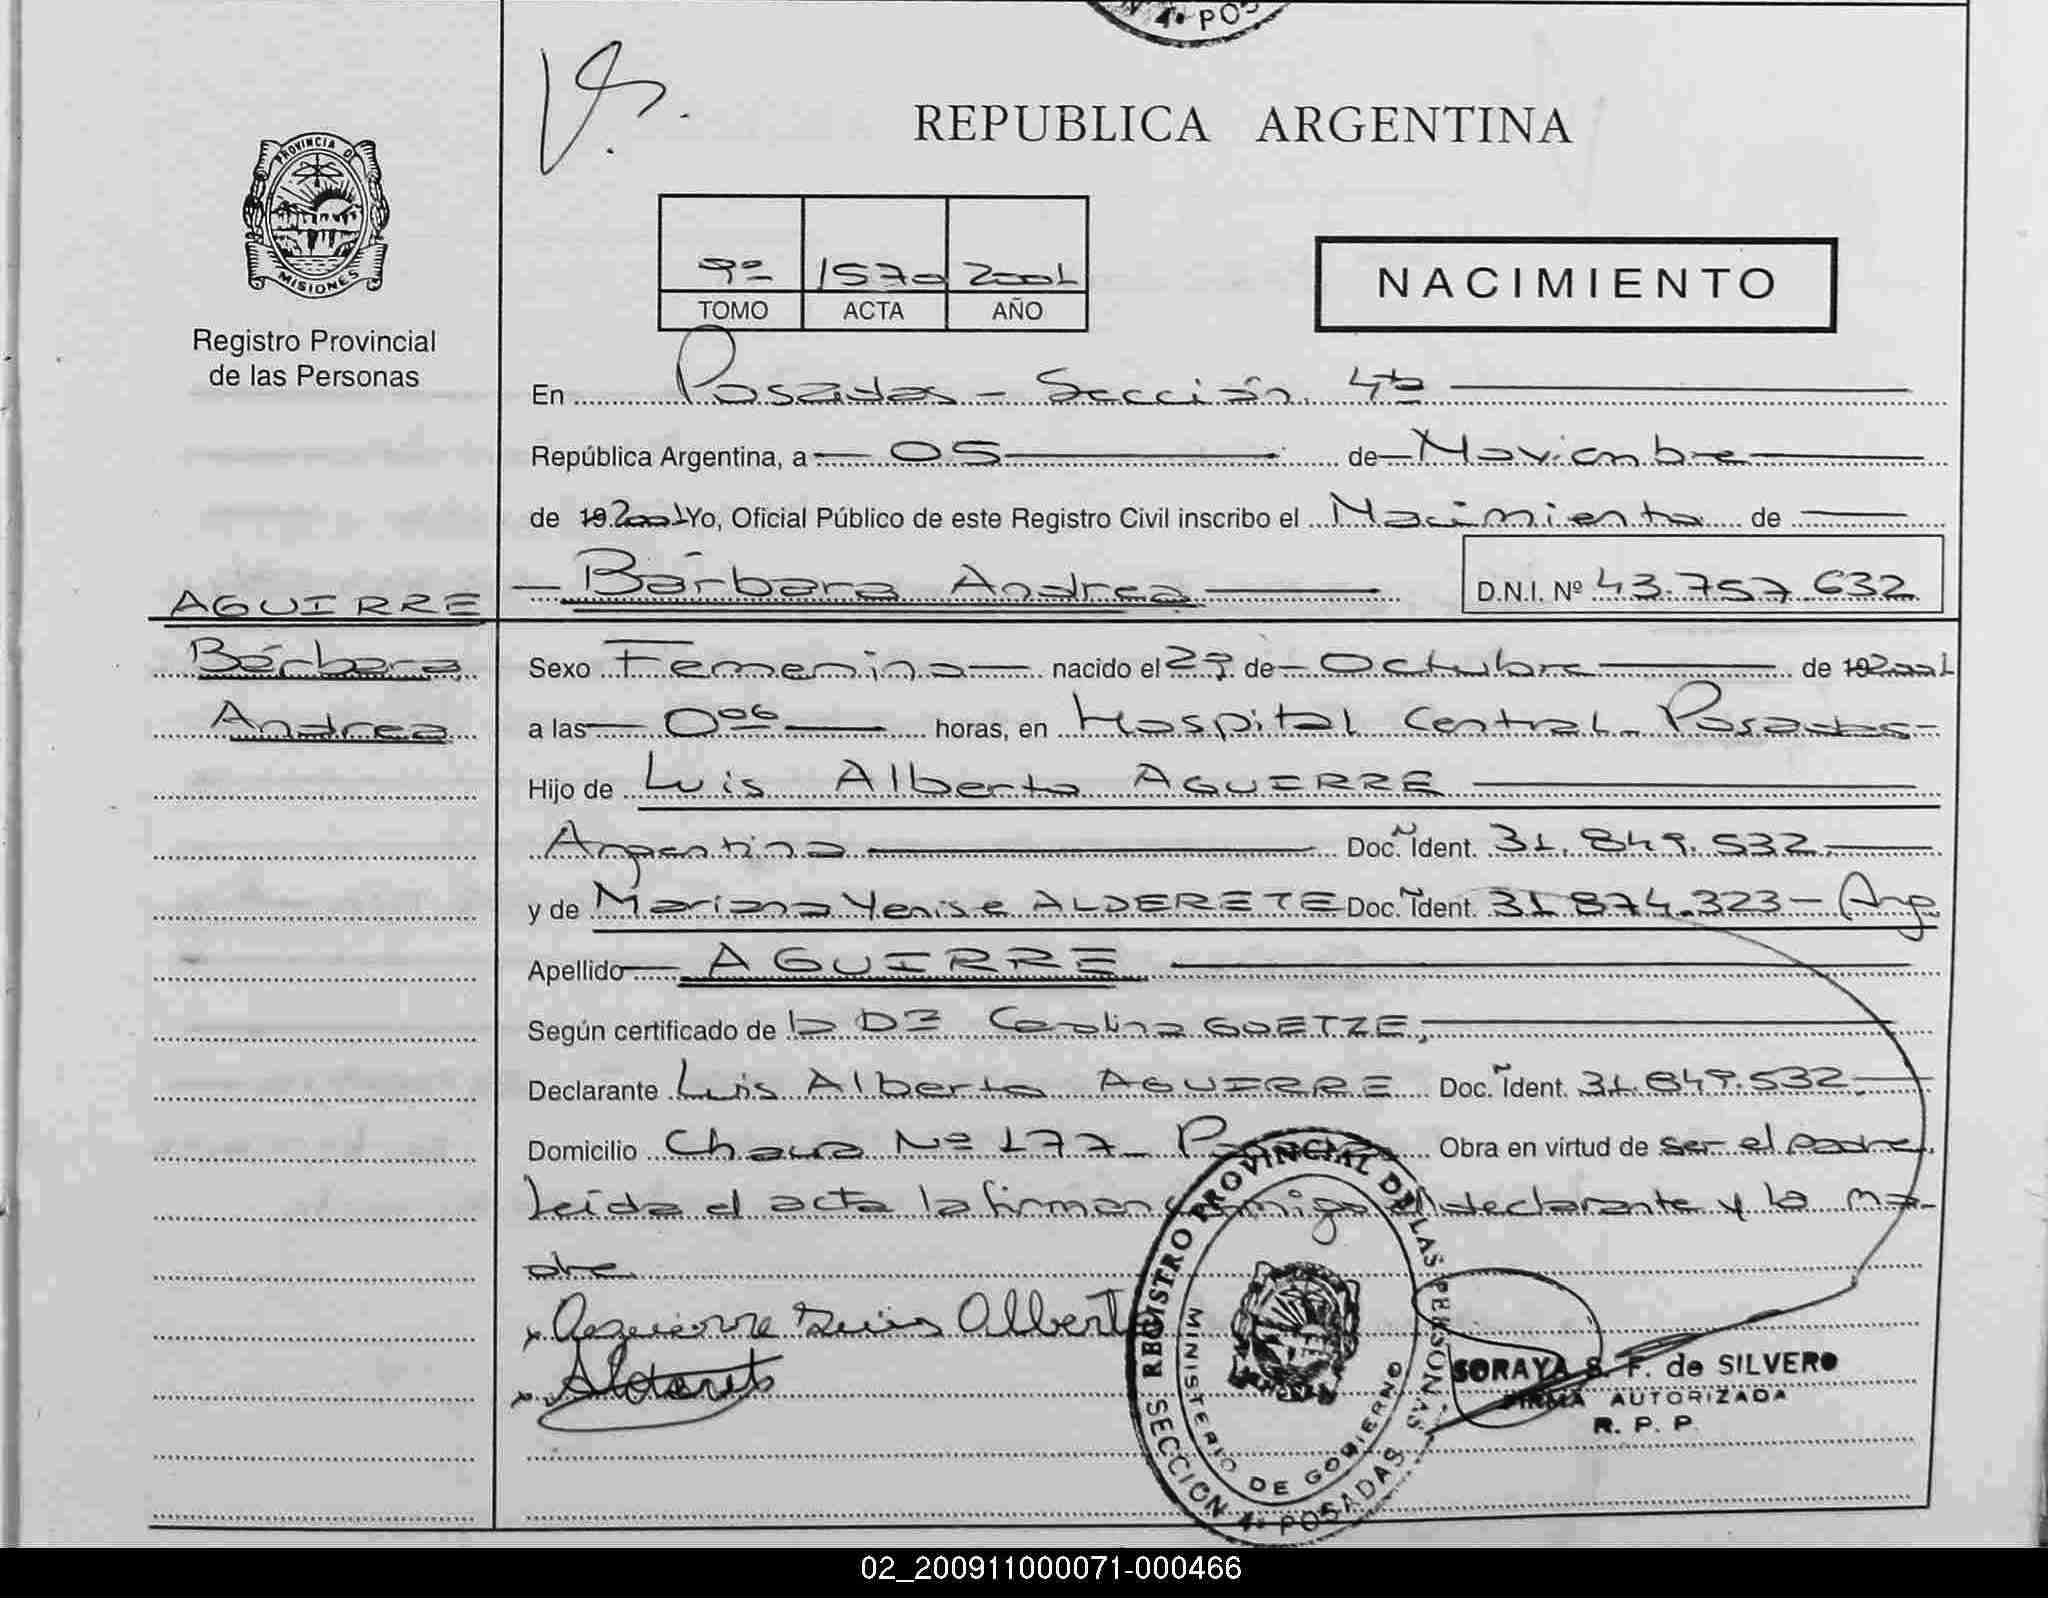 4ª POS
REPUBLICA ARGENTINA
PROVINCIA DE
MISIONES
Registro Provincial
de las Personas
9º 1570 2001
TOMO ACTA AÑO
NACIMIENTO
En Posadas - Sección 4ta
República Argentina, a 05 de Noviembre
de 19 2001 Yo, Oficial Público de este Registro Civil inscribo el Nacimiento de
Bárbara Andrea D.N.I. Nº 43.757.632
AGUIRRE
Bárbara
Andrea
Sexo Femenina nacido el de Octubre de 19 2001
a las 0 06 horas, en Hospital Central - Posadas
Hijo de Luis Alberto AGUIRRE
Argentina Doc. Ident. 31.849.532
y de Mariana Yenise ALDERETE Doc. Ident. 31.874.323 - Arg
Apellido AGUIRRE
Según certificado de la Carolina GOETZE,
Declarante Luis Alberto AGUIRRE Doc. Ident. 31.849.532
Domicilio Nº 177 - Obra en virtud de ser el padre.
Leída el acta la firman conmigo el declarante y la ma-
dre
x Aguirre Luis Albert
x Alderete
REGISTRO PROVINCIAL DE LAS PERSONAS
MINISTERIO DE GOBIERNO
SECCION 4ª POSADAS
SORAYA S. F. de SILVERO
FIRMA AUTORIZADA
R. P. P.
02_200911000071-000466